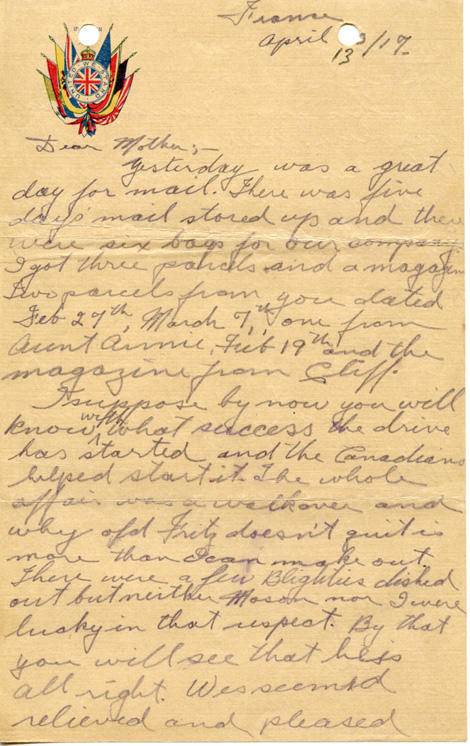 France
April 13/17
UNITED WE STAND
Dear Mother;—
Yesterday was a great
day for mail. There was five
days' mail stored up and there
were six bags for our company
I got three parcels and a magazine
Two parcels from you dated
Feb 27th, March 7th, one from
Aunt Annie, Feb 19th and the
magazine from Cliff.
I suppose by now you will
know with what success the drive
has started and the Canadians
helped start it. The whole
affair was a walkover and
why old Fritz doesn't quit is
more than I can make out.
There were a few Blighties dished
out but neither Mason nor I were
lucky in that respect. By that
you will see that he is
all right. We seemed
relieved and pleased